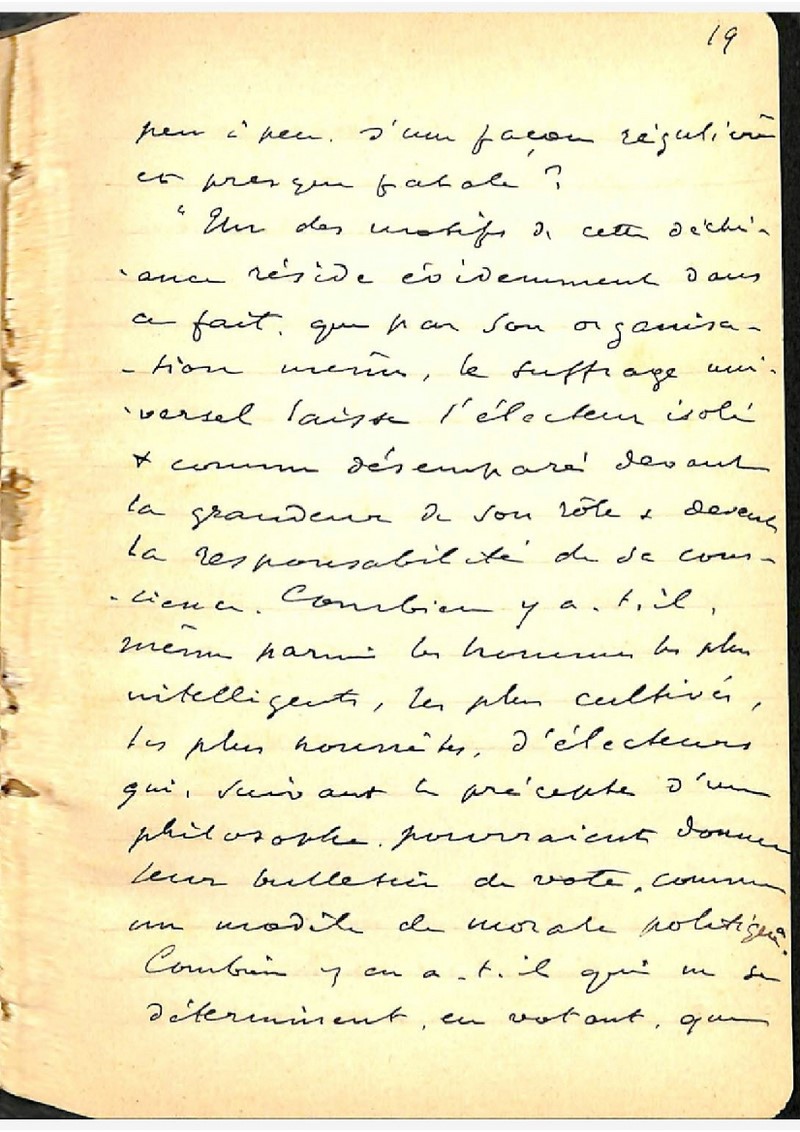 19
peu à peu. d'une façon régulière
et presque fatale ?
"Un des motifs de cette déché-
-ance réside évidemment dans
ce fait, que par son organisa-
-tion même, le suffrage uni-
-versel laisse l'électeur isolé
& comme désemparé devant
la grandeur de son rôle & devant
la responsabilité de sa cons-
-cience. Combien y a-t-il,
même parmi les hommes les plus
intelligents, les plus cultivés,
les plus honnêtes, d'électeurs
qui, suivant le précepte d'un
philosophe, pourraient donner
leur bulletin de vote, comme
un modèle de morale politique.
Combien y en a-t-il qui ne se
déterminent, en votant, que